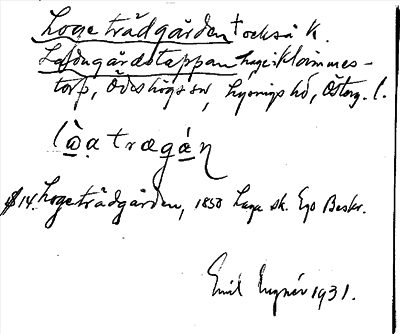 Loge trädgården + också k.
Ladugårdstäppan hage i Klämmes-
torp, Ödeshögs sn, Lysings hd, Österg. l.
l(ò̱ạ træg á̱ƞ
§ 14. Logeträdgården, 1850 Laga sk. Ego Beskr.
Emil 1931.